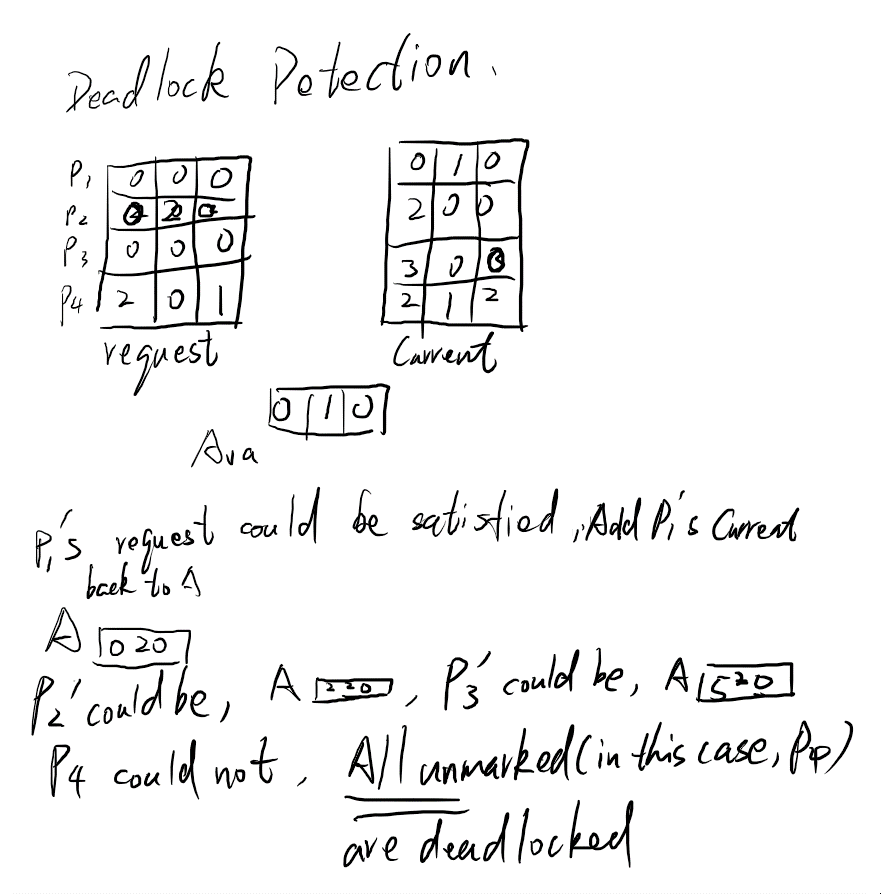 Deadlock Detection.
P1 0 0 0
P2 0 2 0
P3 0 0 0
P4 2 0 1
request
0 1 0
2 0 0
3 0 0
2 1 2
Current
0 1 0
Ava
P1's request could be satisfied, Add P1's Current
back to A
A 0 2 0
P2' could be, A 2 2 0, P3' could be, A 5 2 0
P4 could not, All unmarked (in this case, P4)
are deadlocked